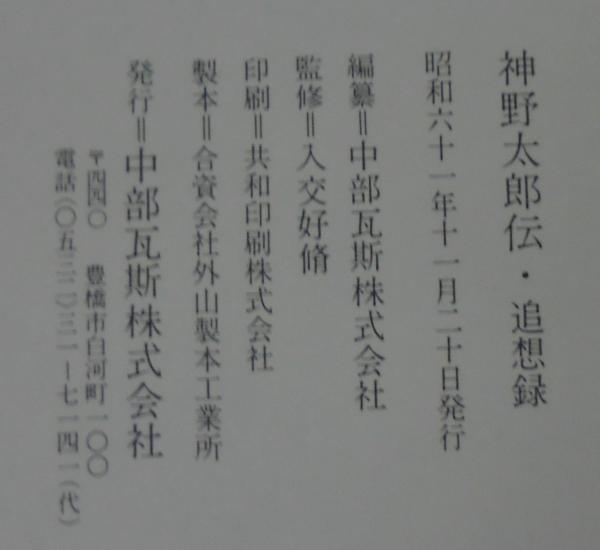 神野太郎伝・追想録
昭和六十一年十一月二十日発行
編纂＝中部瓦斯株式会社
監修＝入交好脩
印刷＝共和印刷株式会社
製本＝合資会社外山製本工業所
発行＝中部瓦斯株式会社
〒四四〇 豊橋市白河町一〇〇
電話（〇五三二）三一―七一四一（代）